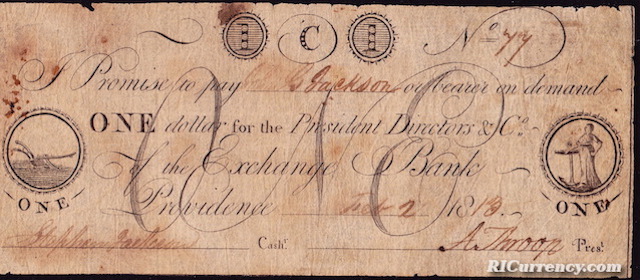 1 C 1 No 77
I Promise to pay C Jackson or bearer on demand
ONE dollar for the President Directors & Co.
of the Exchange Bank
Providence Feb 2 1813.
ONE
ONE
Stephen Jackson Cashr. A. Throop Prest.
RICurrency.com